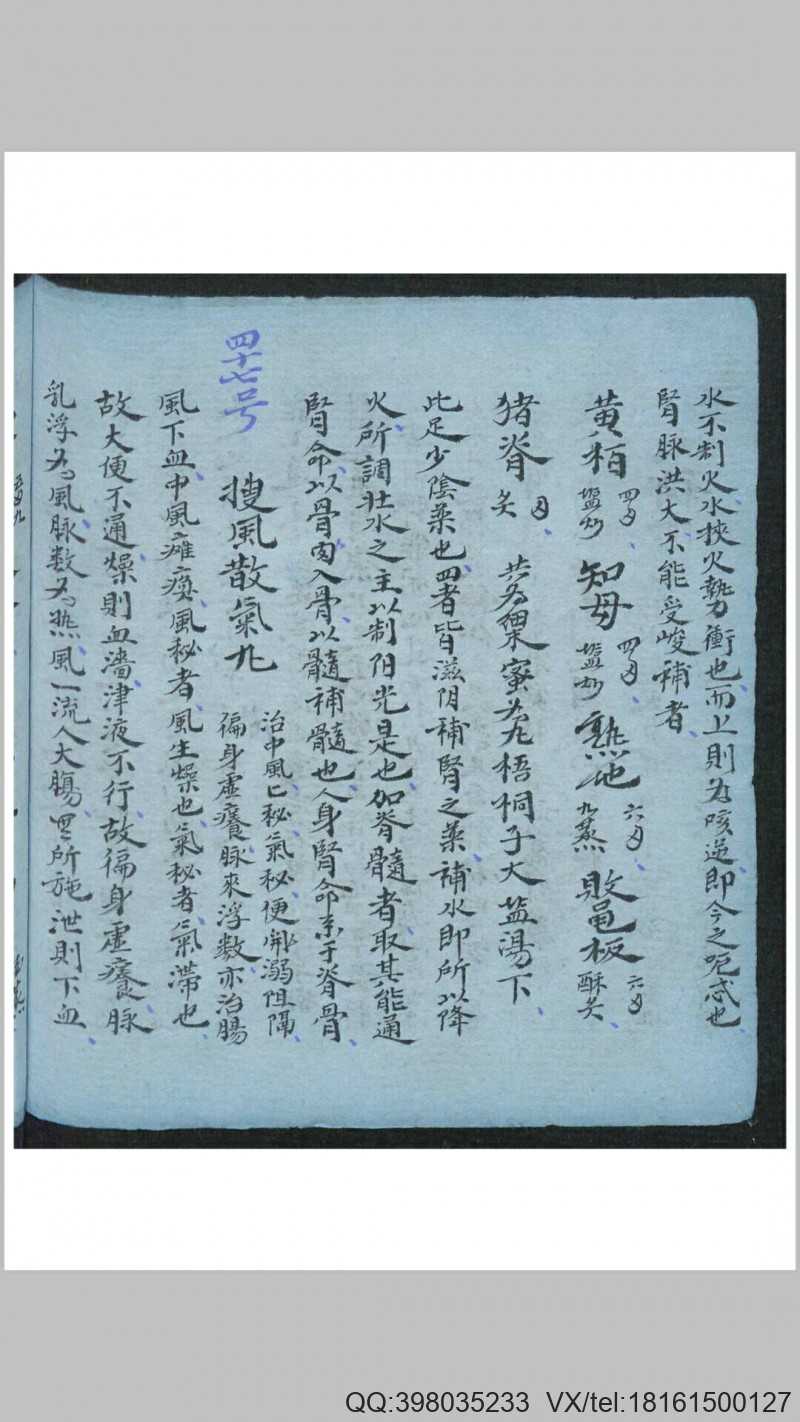 水不制火水挾火勢衝也而上則为咳逆即今之呃忒也
腎脉洪大不能受峻補者
黄栢 四 塩炒 知母 四 塩炒 熟地 六 九蒸 敗龟板 六 酥炙
猪脊 炙 共为 蜜为丸梧桐子大盐湯下
此足少陰薬也四者皆滋阴補腎之薬補水即所以降
火所謂壮水之主以制阳光是也加脊髓者取其能通
腎命以骨肉入骨以髓補髓也人身腎命系于脊骨
四十七号 搜風散氣丸 治中風 秘氣秘便 溺阻隔
徧身虚癢脉來浮数亦治腸
風下血中風癱瘓風秘者風生燥也氣秘者氣滯也
故大便不通燥則血濇津液不行故徧身虚癢脉
乳浮为風脉数为热風一流入大腸 所施泄則下血
QQ:398035233 VX/tel:18161500127